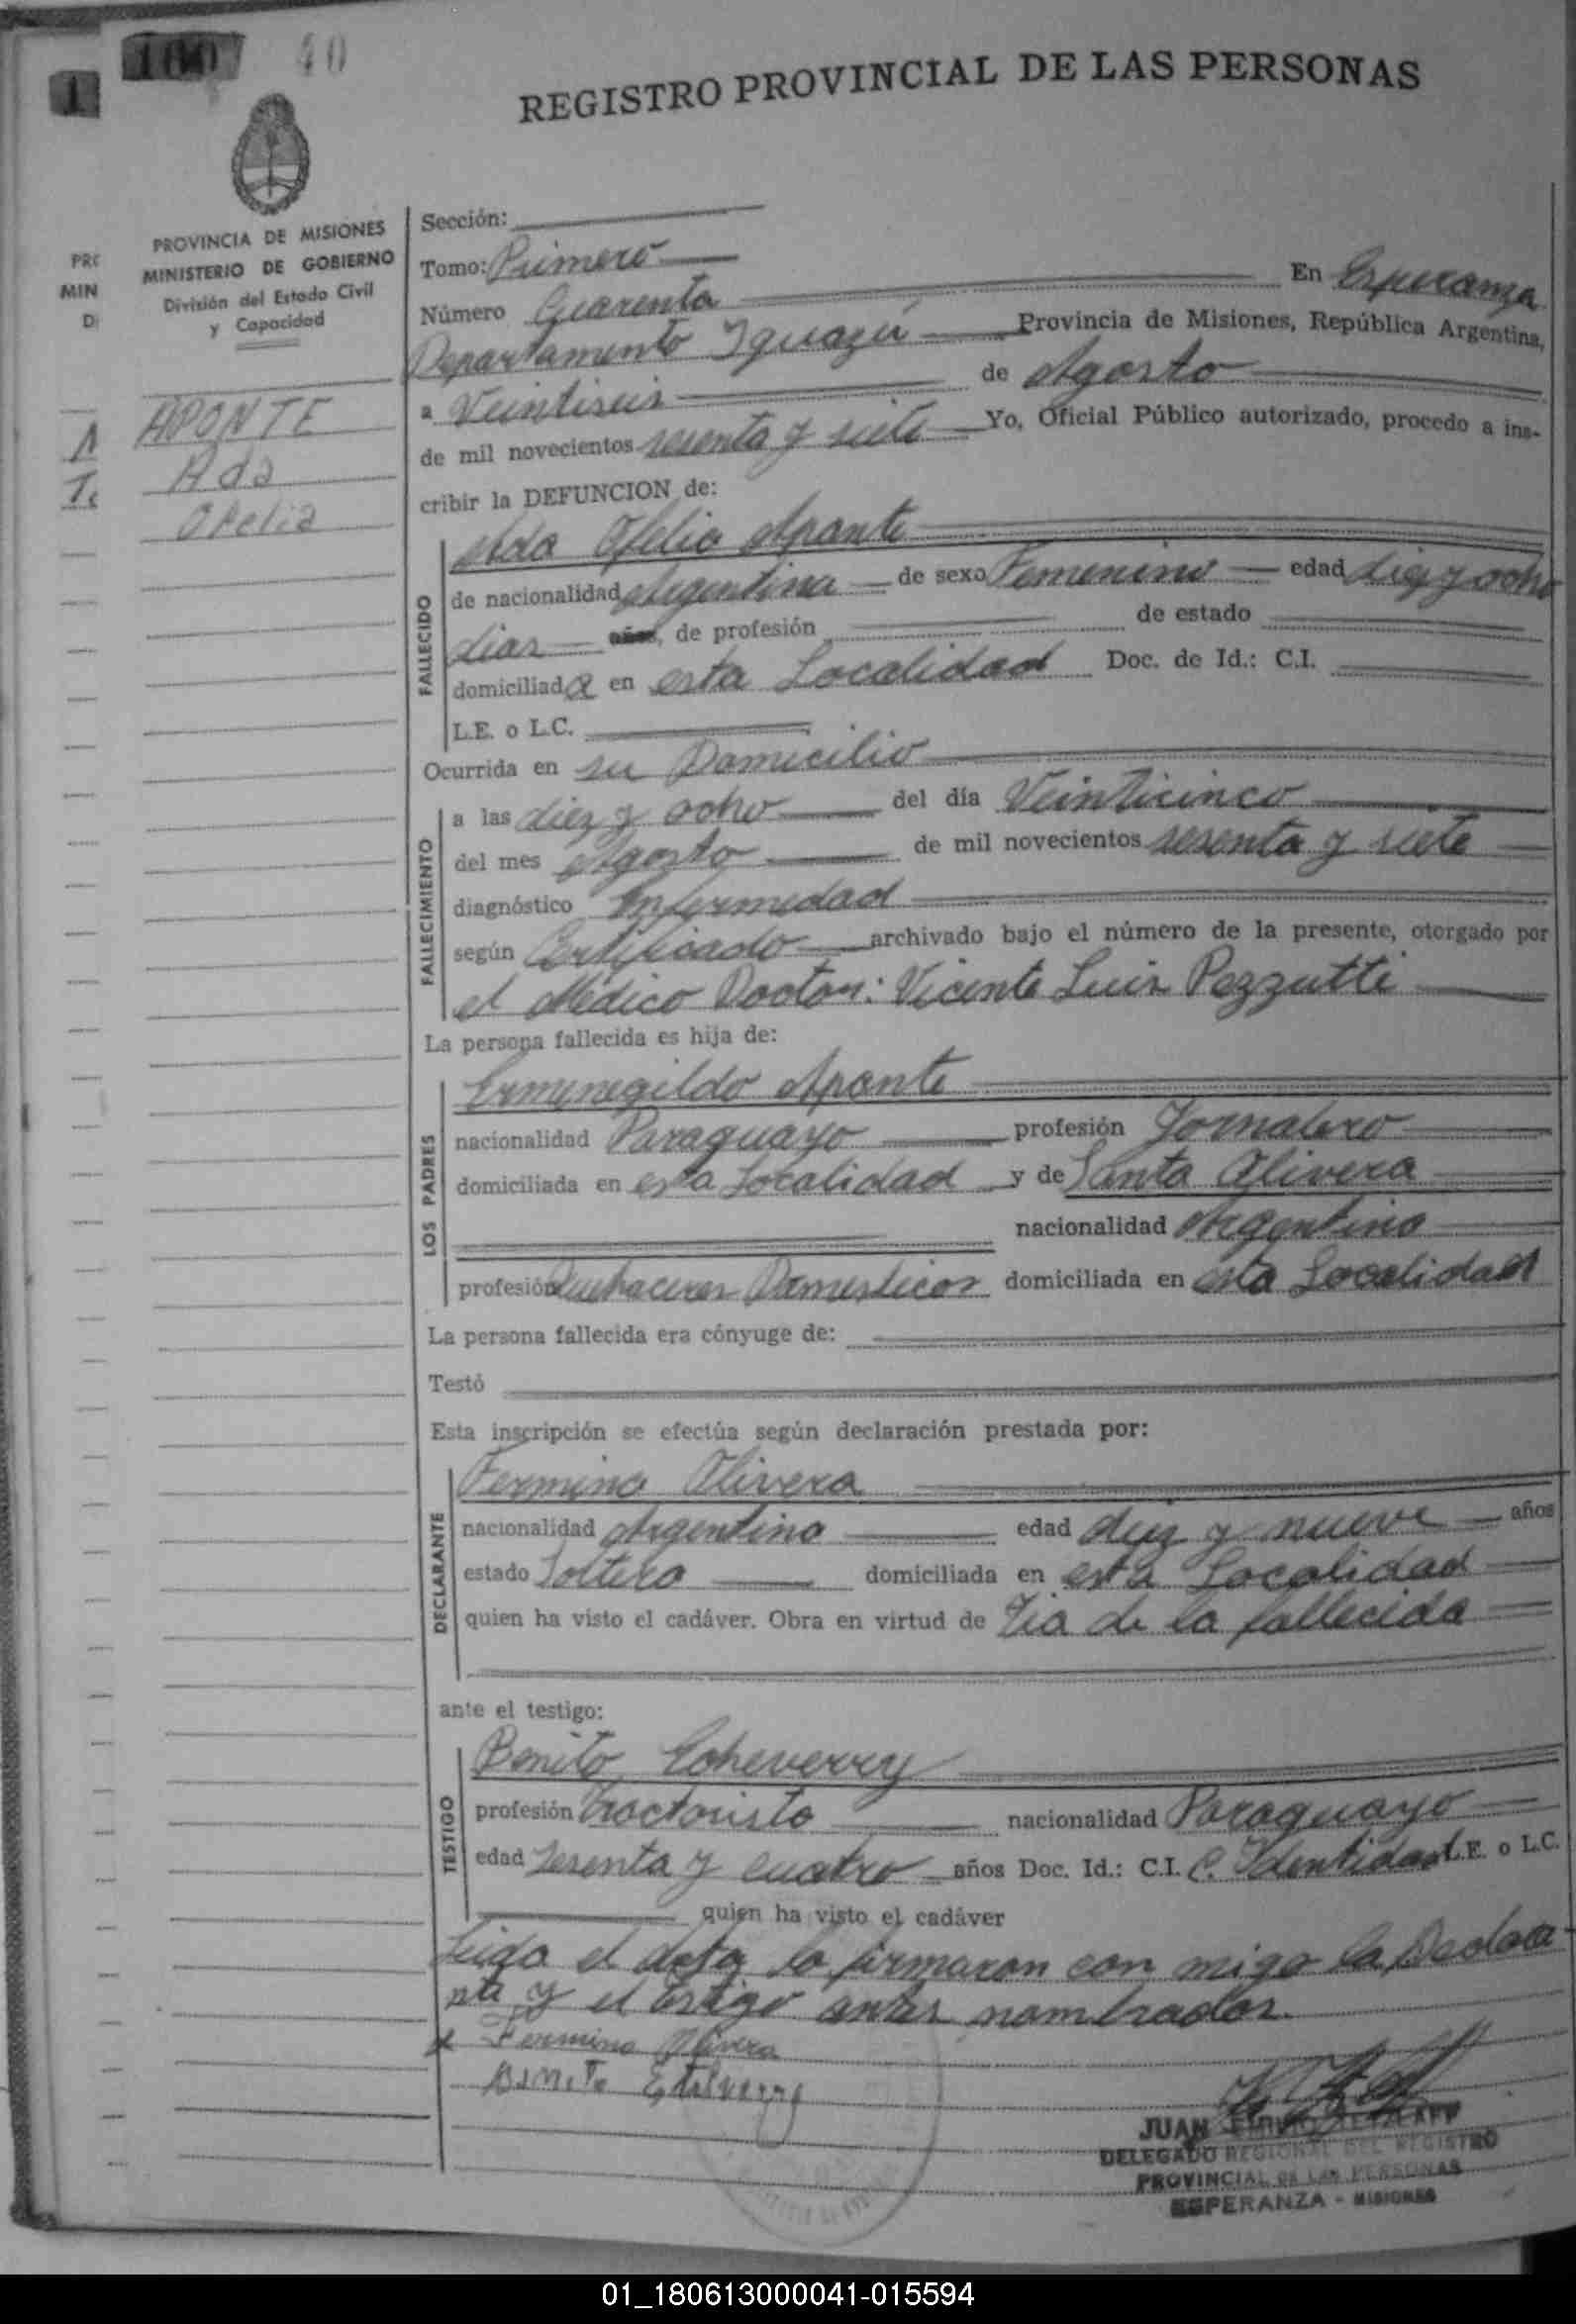 100 40
1
REGISTRO PROVINCIAL DE LAS PERSONAS
PROVINCIA DE MISIONES
MINISTERIO DE GOBIERNO
División del Estado Civil
y Capacidad
PRO
MIN
D
APONTE
Ada
Ofelia
Sección:
Tomo: Primero
Número Cuarenta En Esperanza
Departamento Iguazú Provincia de Misiones, República Argentina,
a Veintiseis de Agosto
de mil novecientos sesenta y siete Yo, Oficial Público autorizado, procedo a ins-
cribir la DEFUNCION de:
Ada Ofelia Aponte
FALLECIDO
de nacionalidad Argentina de sexo Femenino edad diez y ocho
dias años, de profesión de estado
domiciliada en esta Localidad Doc. de Id.: C.I.
L.E. o L.C.
Ocurrida en su Domicilio
FALLECIMIENTO
a las diez y ocho del día Veinticinco
del mes Agosto de mil novecientos sesenta y siete
diagnóstico Enfermedad
según Certificado archivado bajo el número de la presente, otorgado por
el Médico Doctor: Vicente Luis Pezzutti
La persona fallecida es hija de:
LOS PADRES
Ermenegildo Aponte
nacionalidad Paraguayo profesión Jornalero
domiciliada en esta Localidad y de Santa Olivera
nacionalidad Argentina
profesión Quehaceres Domesticos domiciliada en esta Localidad
La persona fallecida era cónyuge de:
Testó
Esta inscripción se efectúa según declaración prestada por:
DECLARANTE
Fermina Olivera
nacionalidad Argentina edad diez y nueve años
estado Soltera domiciliada en esta Localidad
quien ha visto el cadáver. Obra en virtud de Tia de la fallecida
ante el testigo:
TESTIGO
Benito Echeverry
profesión Tractorista nacionalidad Paraguayo
edad sesenta y cuatro años Doc. Id.: C.I. C. Identidad L.E. o L.C.
quien ha visto el cadáver
Leida el Acta la firmaron con migo la Declara-
nte y el testigo antes nombrados.
x Fermina Olivera
Benito Echeverry
JUAN
DELEGADO REGIONAL DEL REGISTRO
PROVINCIAL DE LAS PERSONAS
ESPERANZA - MISIONES
01_180613000041-015594